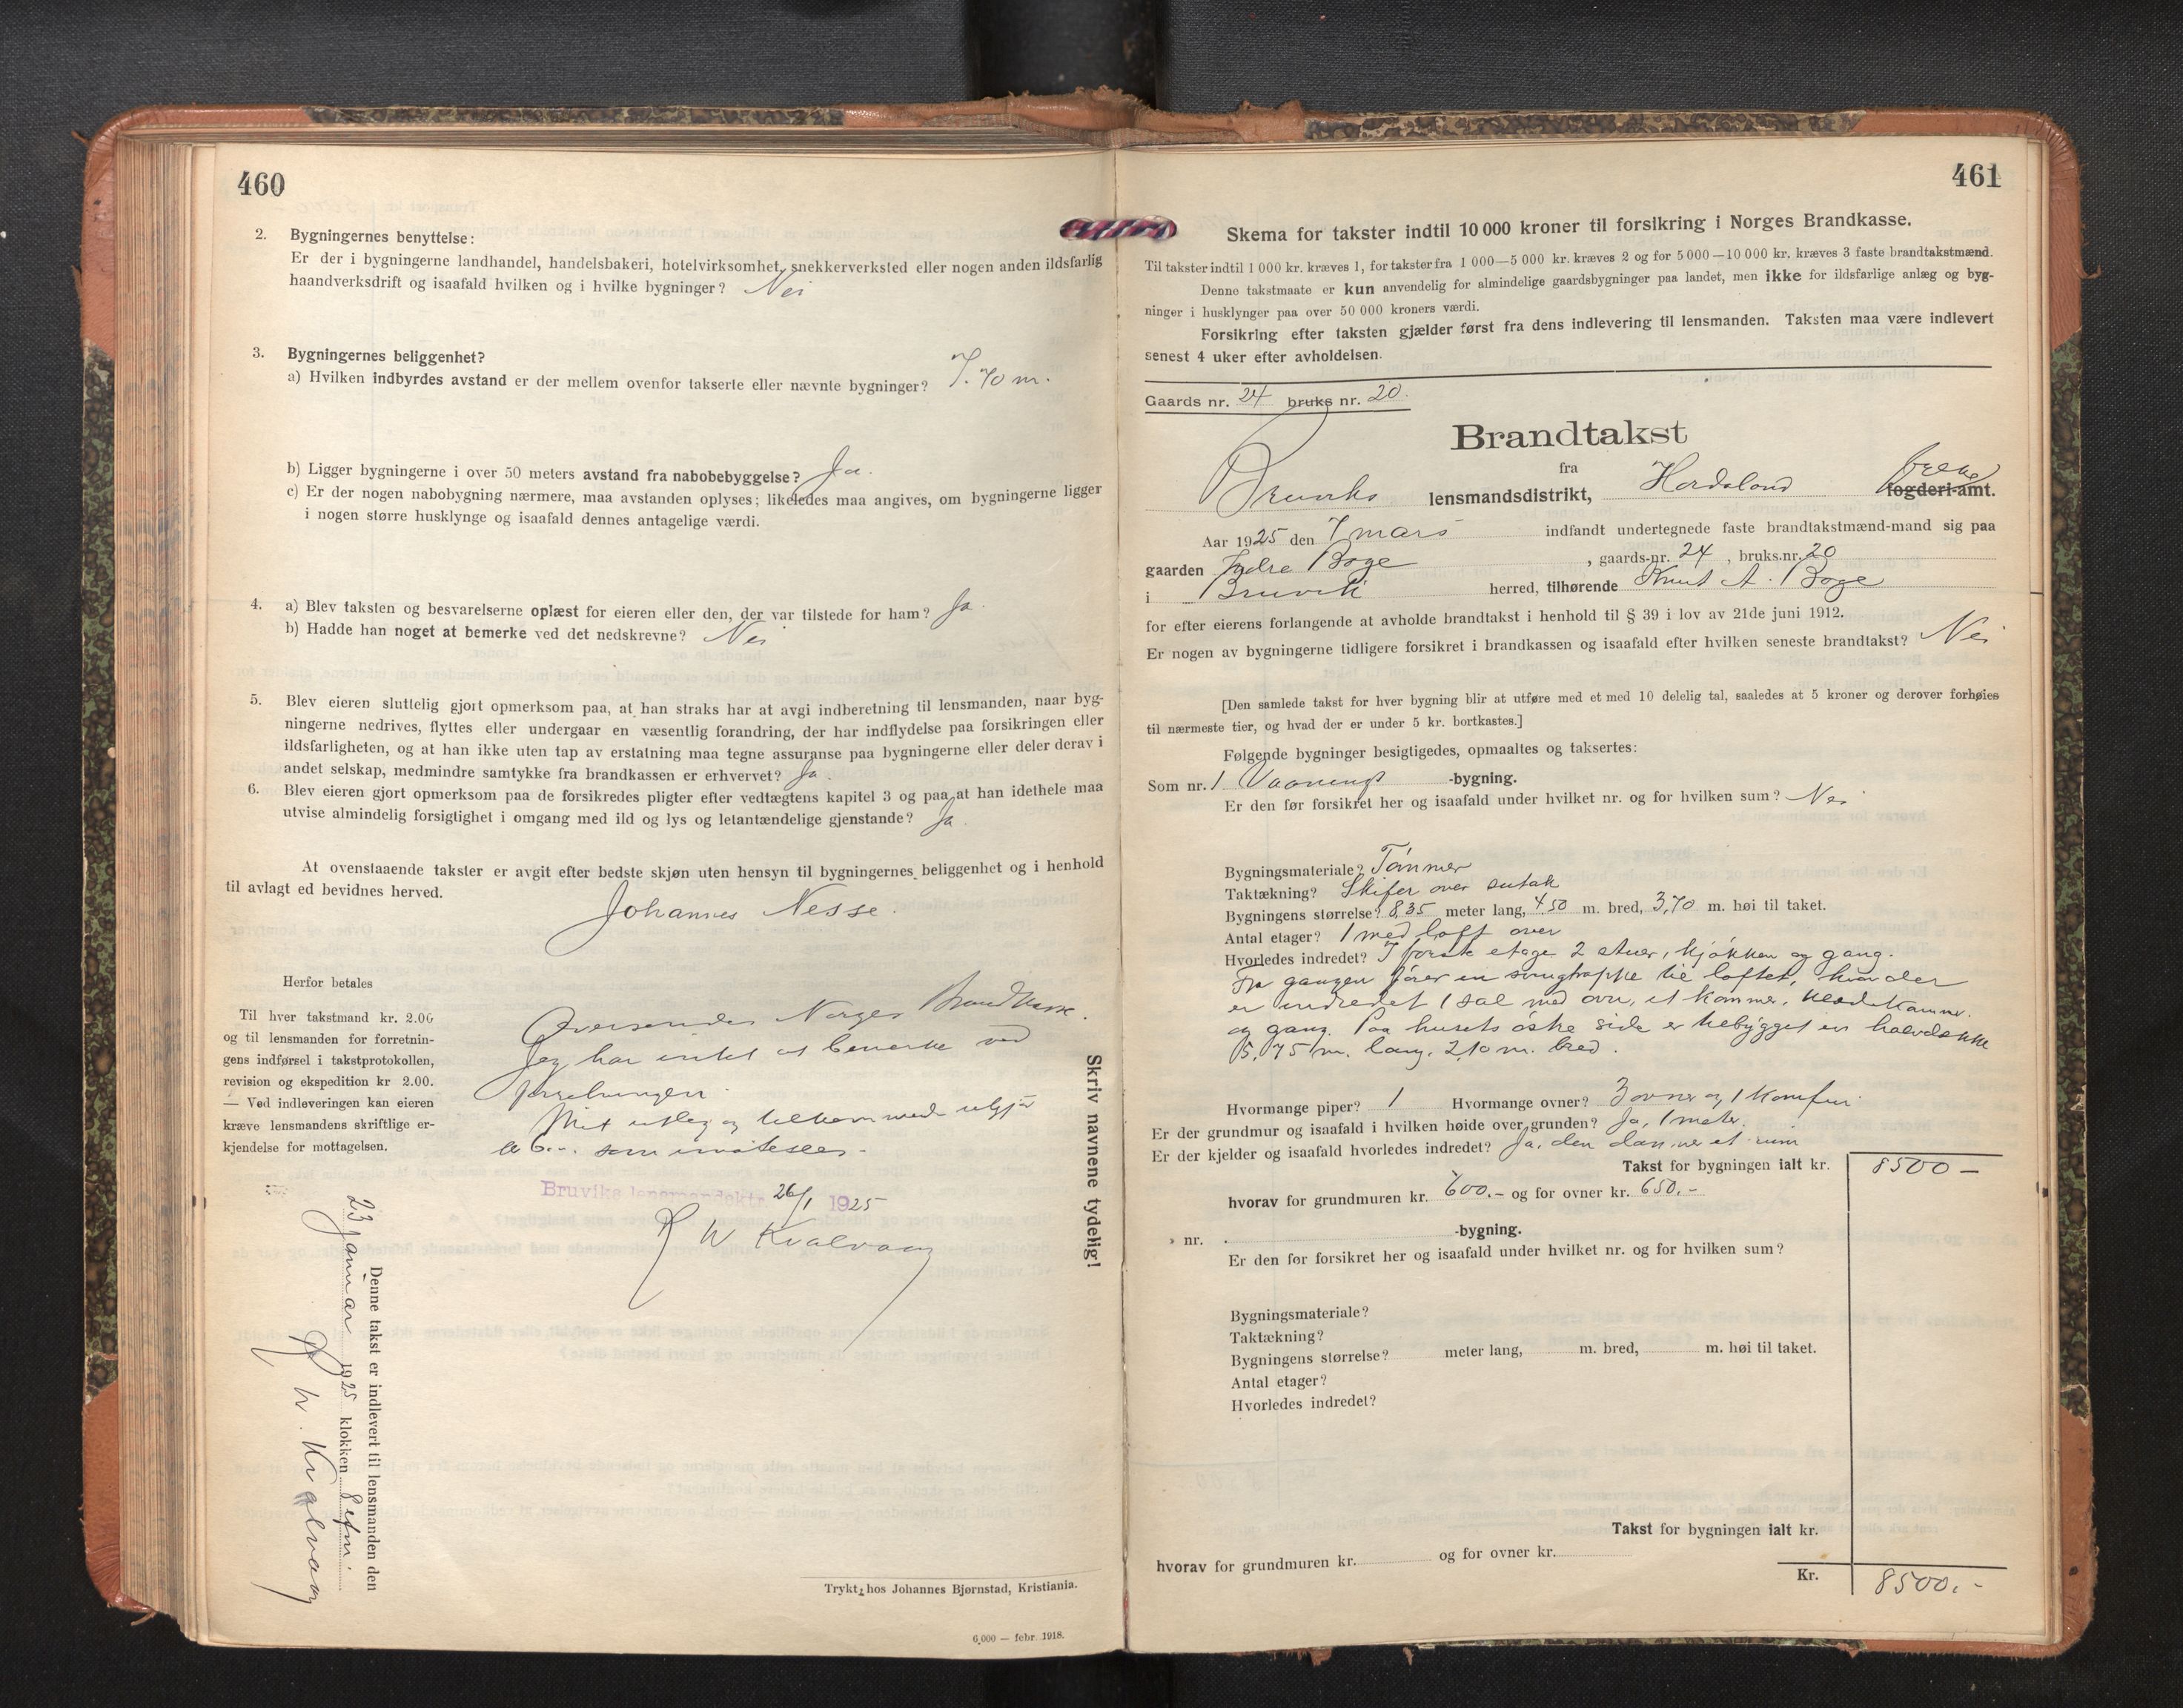 460
2. Bygningernes benyttelse:
Er der i bygningerne landhandel, handelsbakeri, hotelvirksomhet, snekkerverksted eller nogen anden ildsfarlig
haandverksdrift og isaafald hvilken og i hvilke bygninger? Nei
3. Bygningernes beliggenhet?
a) Hvilken indbyrdes avstand er der mellem ovenfor takserte eller nævnte bygninger? 7.70 m.
b) Ligger bygningerne i over 50 meters avstand fra nabobebyggelse? Ja.
c) Er der nogen nabobygning nærmere, maa avstanden oplyses; likeledes maa angives, om bygningerne ligger
i nogen større husklynge og isaafald dennes antagelige værdi.
4. a) Blev taksten og besvarelserne oplæst for eieren eller den, der var tilstede for ham? Ja.
b) Hadde han noget at bemerke ved det nedskrevne? Nei
5. Blev eieren sluttelig gjort opmerksom paa, at han straks har at avgi indberetning til lensmanden, naar byg-
ningerne nedrives, flyttes eller undergaar en væsentlig forandring, der har indflydelse paa forsikringen eller
ildsfarligheten, og at han ikke uten tap av erstatning maa tegne assuranse paa bygningerne eller deler derav i
andet selskap, medmindre samtykke fra brandkassen er erhvervet? Ja.
6. Blev eieren gjort opmerksom paa de forsikredes pligter efter vedtægtens kapitel 3 og paa at han idethele maa
utvise almindelig forsigtighet i omgang med ild og lys og letantændelige gjenstande? Ja.
At ovenstaaende takster er avgit efter bedste skjøn uten hensyn til bygningernes beliggenhet og i henhold
til avlagt ed bevidnes herved.
Johannes Nesse.
Herfor betales
Til hver takstmand kr. 2.00
og til lensmanden for forretnin-
gens indførsel i takstprotokollen,
revision og ekspedition kr 2.00.
— Ved indleveringen kan eieren
kræve lensmandens skriftlige er-
kjendelse for mottagelsen.
Oversendes Norges Brandkasse.
Jeg har intet at bemerke ved
forretningen.
Mit utlæg og tilkommende utgjør
kr 6.-. som
Bruviks lensmandsktr. 26/1 1925
W Kvalvaag
Skriv navnene tydelig!
Denne takst er indlevert til lensmanden den
23 januar 1925 klokken 8 efm.
W. Kvalvaag
Trykt hos Johannes Bjørnstad, Kristiania.
6000 — febr. 1918.
461
Skema for takster indtil 10 000 kroner til forsikring i Norges Brandkasse.
Til takster indtil 1 000 kr. kræves 1, for takster fra 1 000—5 000 kr. kræves 2 og for 5 000—10 000 kr. kræves 3 faste brandtakstmænd.
Denne takstmaate er kun anvendelig for almindelige gaardsbygninger paa landet, men ikke for ildsfarlige anlæg og byg-
ninger i husklynger paa over 50 000 kroners værdi.
Forsikring efter taksten gjælder først fra dens indlevering til lensmanden. Taksten maa være indlevert
senest 4 uker efter avholdelsen.
Gaards nr. 24 bruks nr. 20.
Brandtakst
fra
Bruviks lensmandsdistrikt, Hordaland fogderi-amt.
Aar 1925 den 7 mars indfandt undertegnede faste brandtakstmænd-mand sig paa
gaarden Indre Boge, gaards-nr. 24, bruks.nr. 20
i Bruvik herred, tilhørende Knut A. Boge
for efter eierens forlangende at avholde brandtakst i henhold til § 39 i lov av 21de juni 1912.
Er nogen av bygningerne tidligere forsikret i brandkassen og isaafald efter hvilken seneste brandtakst? Nei
[Den samlede takst for hver bygning blir at utføre med et med 10 delelig tal, saaledes at 5 kroner og derover forhøies
til nærmeste tier, og hvad der er under 5 kr. bortkastes.]
Følgende bygninger besigtigedes, opmaaltes og taksertes:
Som nr. 1 Vaanings -bygning.
Er den før forsikret her og isaafald under hvilket nr. og for hvilken sum? Nei
Bygningsmateriale? Tømmer
Taktækning? Skifer over sutak
Bygningens størrelse? 8,35 meter lang, 4,50 m. bred, 3,70 m. høi til taket.
Antal etager? 1 med loft over
Hvorledes indredet? I første etage 2 stuer, kjøkken og gang.
Fra gangen fører en svingtrappe til loftet, hvor der
er indredet 1 sal med ovn, et kammer, klædekammer
og gang. Paa husets østre side er tilbygget en halvdække
5,75 m. lang, 2,10 m. bred.
Hvormange piper? 1 Hvormange ovner? 3 ovner og 1 komfur
Er der grundmur og isaafald i hvilken høide over grunden? Ja, 1 meter.
Er der kjelder og isaafald hvorledes indredet? Ja, den danner et rum
Takst for bygningen ialt kr. 8500 —
hvorav for grundmuren kr. 600.- og for ovner kr. 650.-
» nr. -bygning.
Er den før forsikret her og isaafald under hvilket nr. og for hvilken sum?
Bygningsmateriale?
Taktækning?
Bygningens størrelse? meter lang, m. bred, m. høi til taket.
Antal etager?
Hvorledes indredet?
Takst for bygningen ialt kr.
hvorav for grundmuren kr. og for ovner kr.
Kr. 8500.-